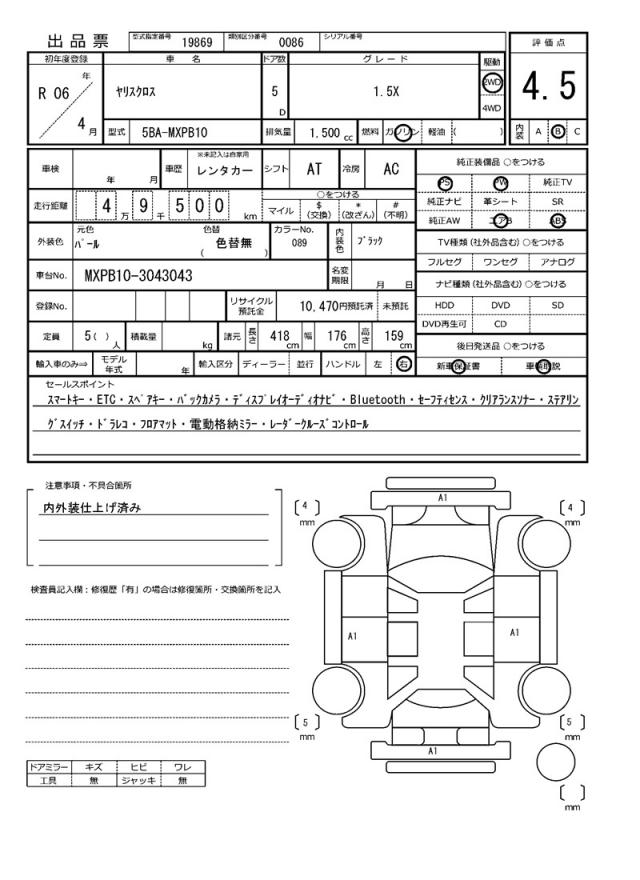 出品票 型式指定番号 19869 類別区分番号 0086 シリアル番号
評価点
4.5
内装 A B C
初年度登録 車名 ドア数 グレード 駆動
R 06 年 4 月
ヤリスクロス 5 D 1.5X 2WD 4WD
型式 5BA-MXPB10 排気量 1.500 cc 燃料 ガソリン 軽油 ( )
車検 年 月 車歴 ※未記入は自家用 レンタカー シフト AT 冷房 AC
走行距離 4 万 9 千 5 0 0 km
○をつける
マイル $ (交換) * (改ざん) # (不明)
外装色 元色 パール 色替 色替無 ( ) カラーNo. 089 内装色 ブラック
車台No. MXPB10-3043043 名変期限 月 日
登録No. リサイクル預託金 10,470円預託済 未預託
定員 5( ) 人 積載量 kg 諸元 長さ 418 cm 幅 176 cm 高さ 159 cm
輸入車のみ⇒ モデル年式 年 輸入区分 ディーラー 並行 ハンドル 左 右
純正装備品 ○をつける
PS PW 純正TV
純正ナビ 革シート SR
純正AW エアB ABS
TV種類(社外品含む)○をつける
フルセグ ワンセグ アナログ
ナビ種類(社外品含む)○をつける
HDD DVD SD
DVD再生可 CD
後日発送品 ○をつける
新車保証書 車輌取説
セールスポイント
スマートキー・ETC・スペアキー・バックカメラ・ディスプレイオーディオナビ・Bluetooth・セーフティセンス・クリアランスソナー・ステアリン
グスイッチ・ドラレコ・フロアマット・電動格納ミラー・レーダークルーズコントロール
注意事項・不具合箇所
内外装仕上げ済み
検査員記入欄：修復歴「有」の場合は修復箇所・交換箇所を記入
ドアミラー キズ ヒビ ワレ
工具 無 ジャッキ 無
A1
4 mm 4 mm
A1 A1
5 mm 5 mm
A1
mm